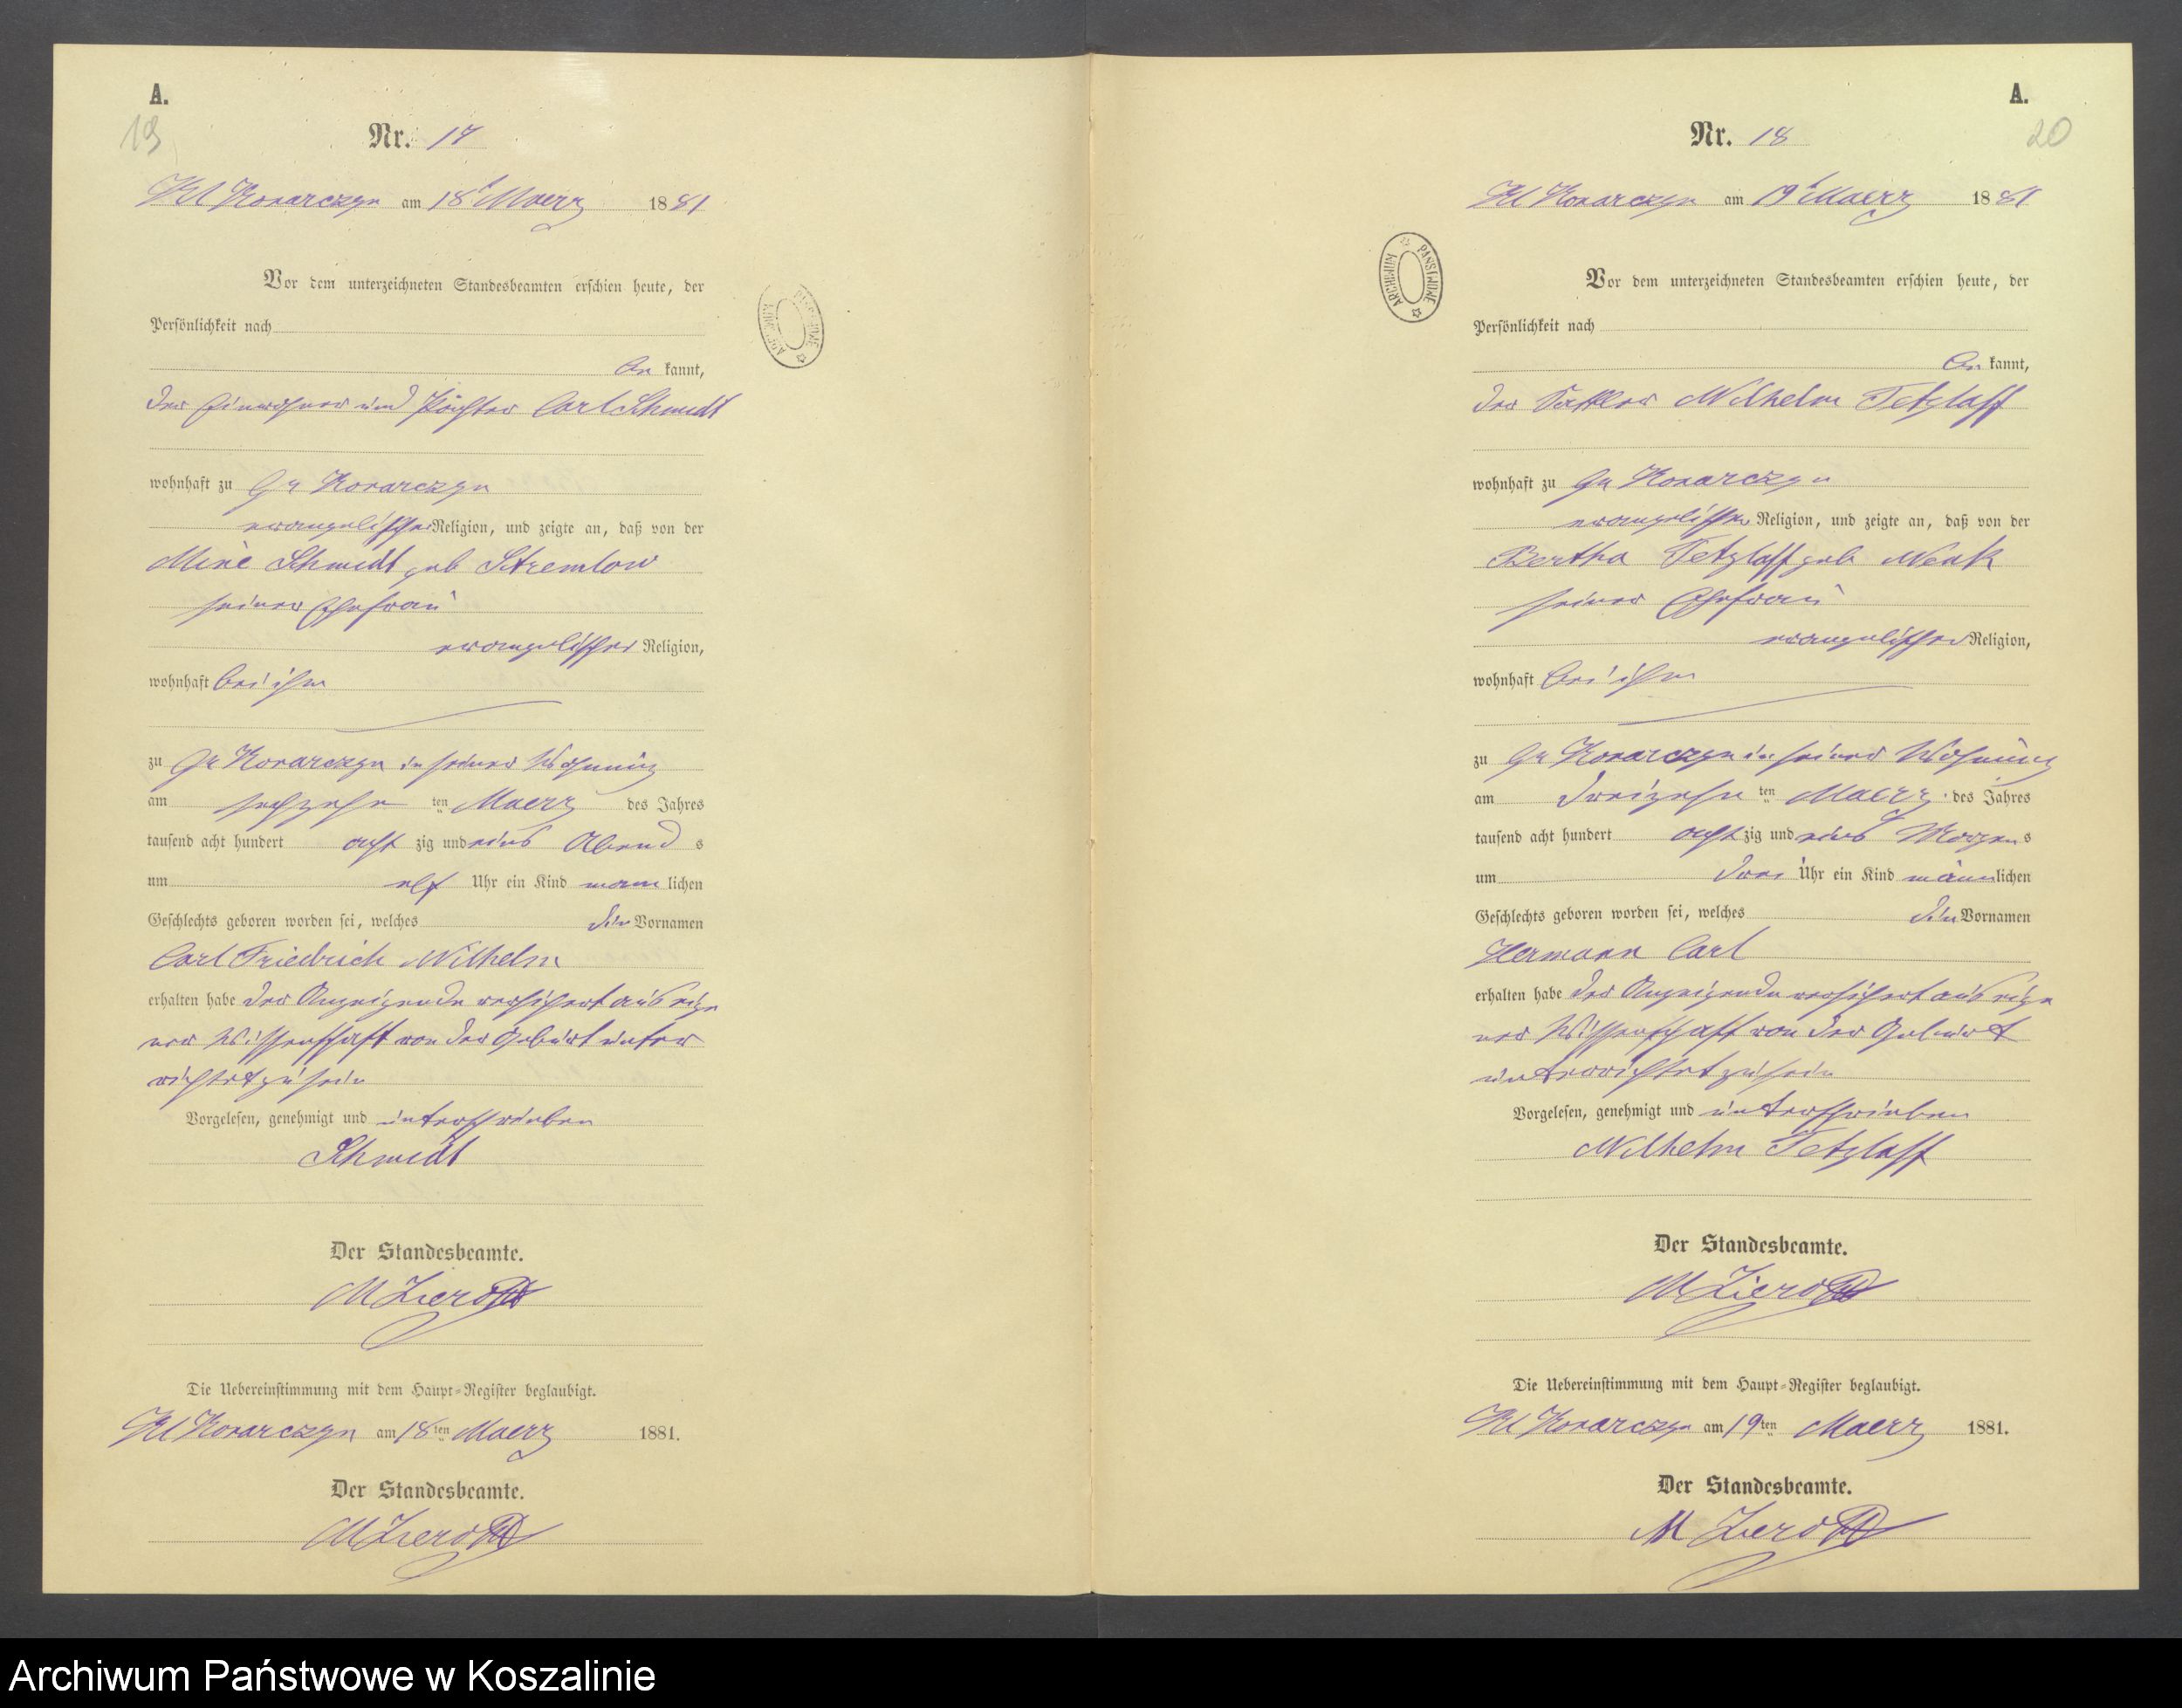 A.
19
Nr. 17
Kl Konarczyn am 18t Maerz 1881
Vor dem unterzeichneten Standesbeamten erschien heute, der
Persönlichkeit nach
be kannt,
der Einwohner und Pächter Carl Schmidt
wohnhaft zu Gr Konarczyn
evangelischer Religion, und zeigte an, daß von der
Mine Schmidt geb Stremlow
seiner Ehefrau
evangelischer Religion,
wohnhaft bei ihm
zu Gr Konarczyn in seiner Wohnung
am sechzehn ten Maerz des Jahres
tausend acht hundert acht zig und eins Abend s
um elf Uhr ein Kind mann lichen
Geschlechts geboren worden sei, welches die Vornamen
Carl Friedrich Wilhelm
erhalten habe der Anzeigende versichert aus eige
ner Wissenschaft von der Geburt unter
richtet zu sein
Vorgelesen, genehmigt und unterschrieben
Schmidt
Der Standesbeamte.
M Zieroth
Die Uebereinstimmung mit dem Haupt-Register beglaubigt.
Kl Konarczyn am 18ten Maerz 1881.
Der Standesbeamte.
M Zieroth
A.
20
Nr. 18
Kl Konarczyn am 19t Maerz 1881
ARCHIWUM PAŃSTWOWE
Vor dem unterzeichneten Standesbeamten erschien heute, der
Persönlichkeit nach
be kannt,
der Sattler Wilhelm Tetzlaff
wohnhaft zu Gr Konarczyn
evangelischer Religion, und zeigte an, daß von der
Bertha Tetzlaff geb Wenk
seiner Ehefrau
evangelischer Religion,
wohnhaft bei ihm
zu Gr Konarczyn in seiner Wohnung
am dreizehn ten Maerz des Jahres
tausend acht hundert acht zig und eins Morgen s
um drei Uhr ein Kind männ lichen
Geschlechts geboren worden sei, welches die Vornamen
Hermann Carl
erhalten habe der Anzeigende versichert aus eige
ner Wissenschaft von der Geburt
unterrichtet zu sein
Vorgelesen, genehmigt und unterschrieben
Wilhelm Tetzlaff
Der Standesbeamte.
M Zieroth
Die Uebereinstimmung mit dem Haupt-Register beglaubigt.
Kl Konarczyn am 19ten Maerz 1881.
Der Standesbeamte.
M Zieroth
Archiwum Państwowe w Koszalinie